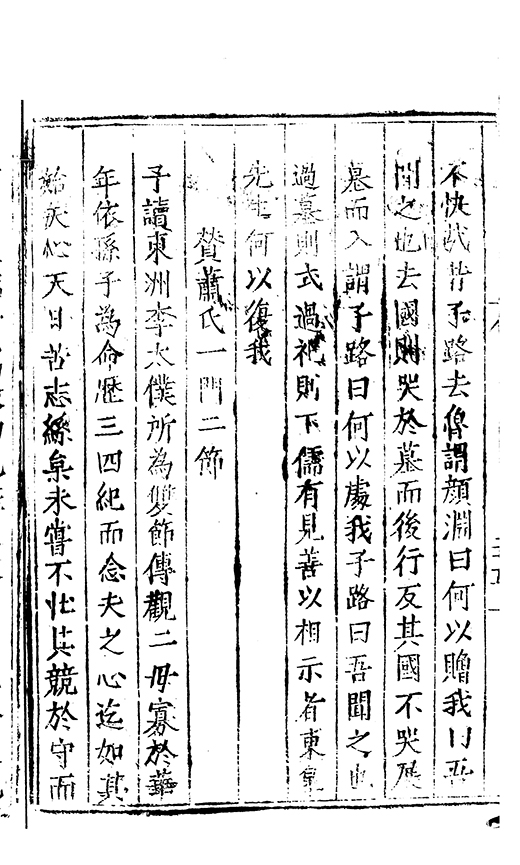 不快哉昔子路去魯謂顏淵曰何以贈我曰吾
聞之也去國則哭於墓而後行反其國不哭展
墓而入謂子路曰何以處我子路曰吾聞之也
過墓則式過祀則下儒有見善以相示者東
先生何以復我
贊蕭氏一門二節
予讀東洲李太僕所為雙節傳觀二母寡於華
年依孫子為命歷三四紀而念夫之心迄如其
始矢心天日苦志絲枲未嘗不壯其競於守而